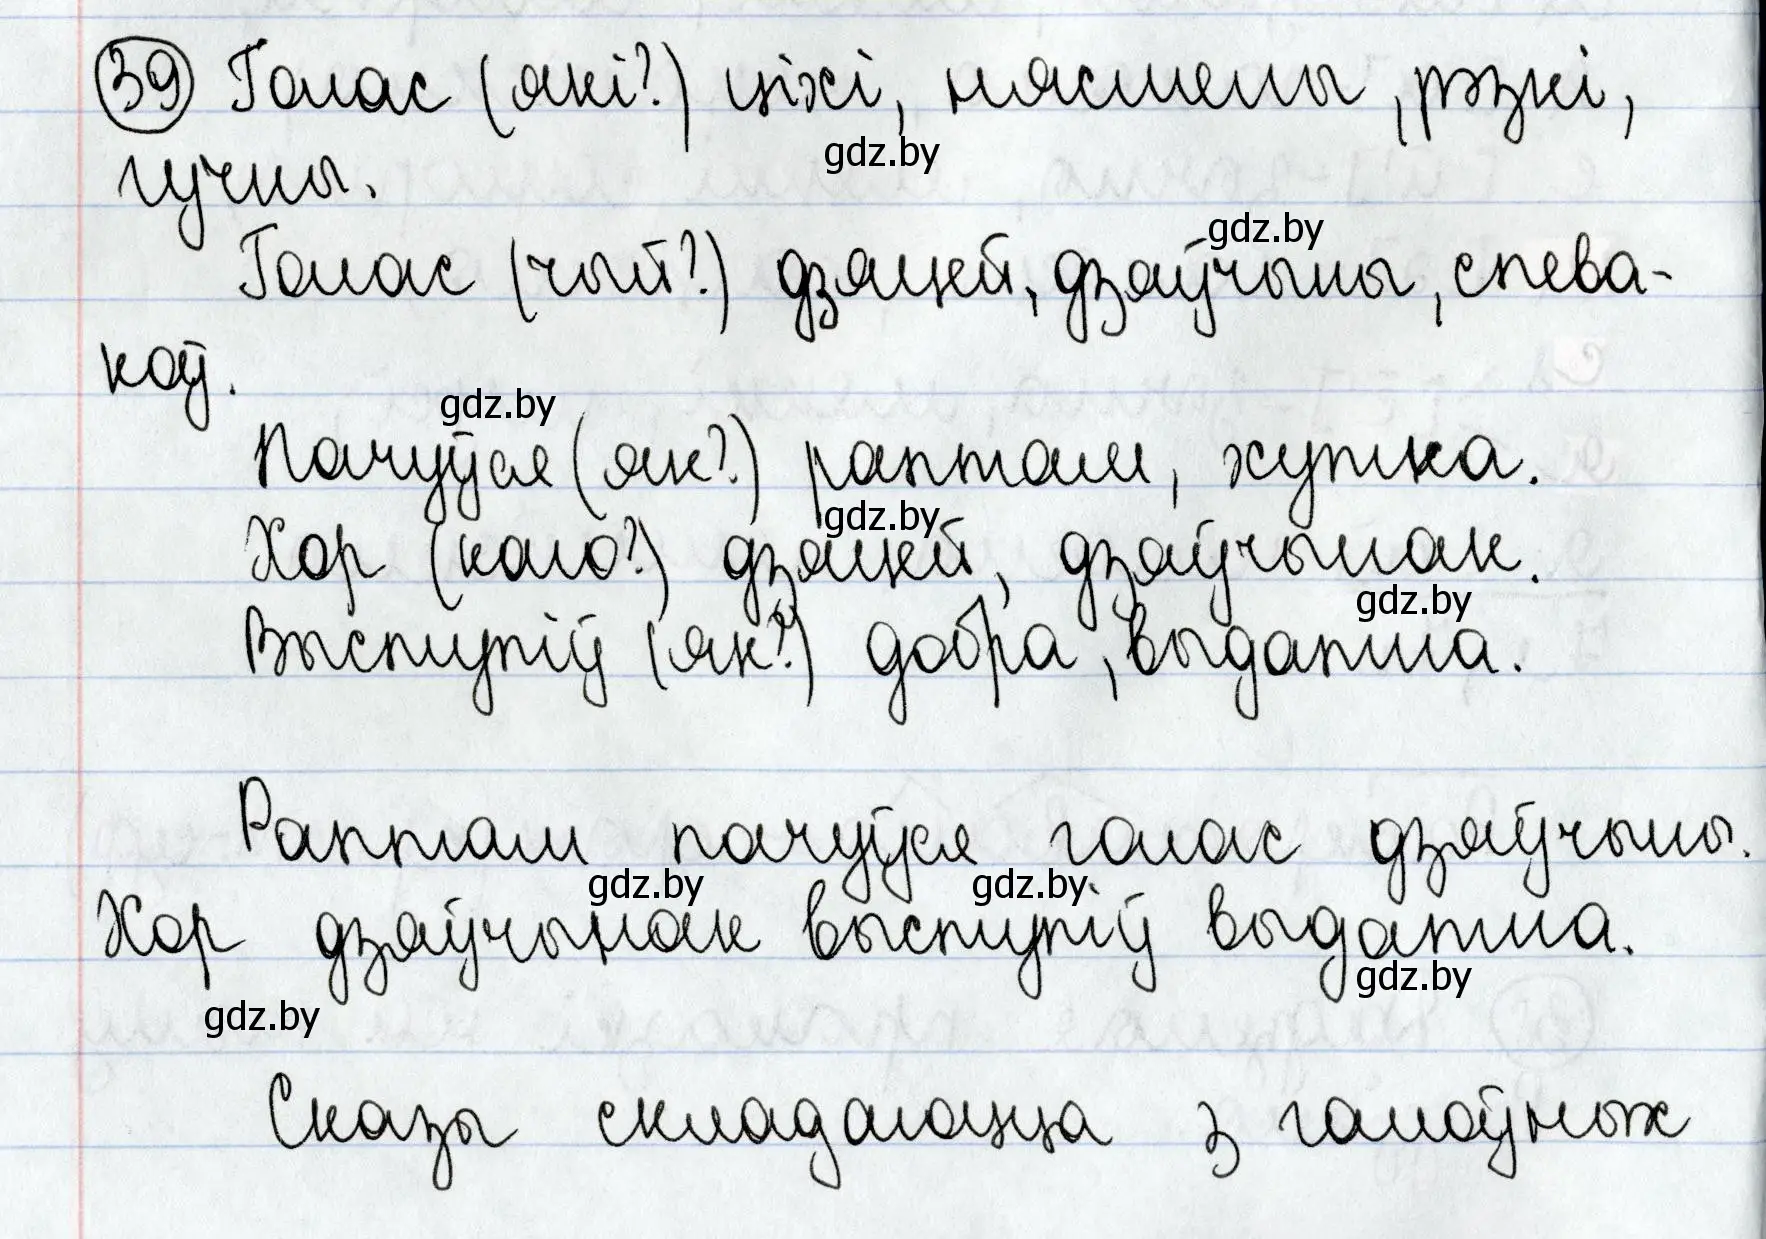 39 Голас (які?) ціхі, нясмелы, рэзкі,
gdz.by
гучны.
gdz.by
Голас (чый?) дзяцей, дзяўчыны, спева-
каў.
gdz.by
Пачуўся (як?) раптам, хутка.
gdz.by
Хор (каго?) дзяцей, дзяўчынак.
gdz.by
Выступіў (як?) добра, выдатна.
Раптам пачуўся голас дзяўчыны.
gdz.by gdz.by
Хор дзяўчынак выступіў выдатна.
gdz.by
gdz.by
Сказы складаюцца з галоўных